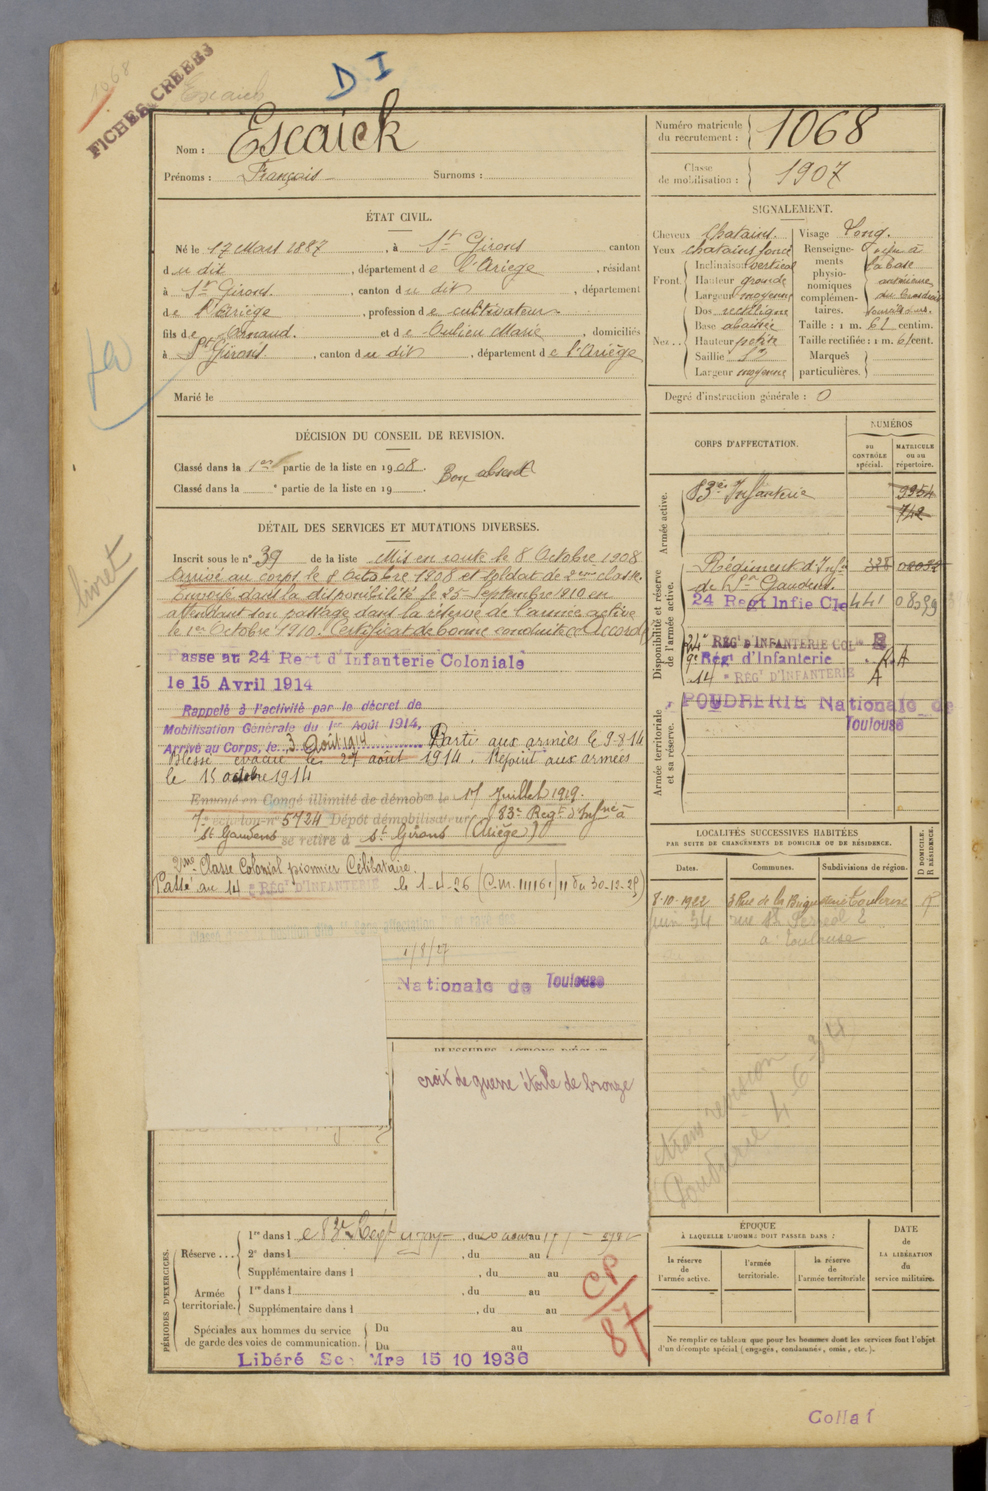 1068
FICHES CRÉÉES
Escaich
D I
Nom : Escaich
Prénoms : François Surnoms :
Numéro matricule du recrutement : 1068
Classe de mobilisation : 1907
ÉTAT CIVIL.
Né le 17 Mars 1887, à St Girons canton
du dit, département de l'Ariège, résidant
à St Girons, canton du dit, département
de l'Ariège, profession de cultivateur
fils de Arnaud et de Aulieu Marie, domiciliés
à St Girons, canton du dit, département de l'Ariège
Marié le
SIGNALEMENT.
Cheveux chatains.
Yeux chatains foncé
Front
Inclinaison vertical
Hauteur grande
Largeur moyenne
Nez
Dos rectiligne
Base abaissée
Hauteur petite
Saillie
Largeur moyenne
Visage Long.
Renseignements physionomiques complémentaires.
la base
antérieure
Taille : 1 m. 61 centim.
Taille rectifiée : 1 m. 61 cent.
Marques particulières.
Degré d'instruction générale : 0
DÉCISION DU CONSEIL DE REVISION.
Classé dans la 1ere partie de la liste en 1908. Bon absent
Classé dans la e partie de la liste en 19
DÉTAIL DES SERVICES ET MUTATIONS DIVERSES.
Inscrit sous le n° 39 de la liste Mis en route le 8 Octobre 1908
Arrivé au corps le 8 Octobre 1908 et soldat de 2eme classe.
Envoyé dans la disponibilité le 25 Septembre 1910 en
attendant son passage dans la réserve de l'armée active
le 1er Octobre 1910. Certificat de bonne conduite Accordé
Passe au 24 Regt d'Infanterie Coloniale
le 15 Avril 1914
Rappelé à l'activité par le décret de
Mobilisation Générale du 1er Août 1914,
Arrivé au Corps, le 3 Août 1914 Parti aux armées le 9-8-14
Blessé évacué le 27 août 1914. Rejoint aux armées
le 15 octobre 1914
Envoyé en Congé illimité de démobon le 17 Juillet 1919.
7e échelon n° 5724 Dépôt démobilisateur 83e Regt d'Infrie à
St Gaudens se retire à St Girons (Ariège)
2me Classe Colonial pionnier Célibataire.
Passé au 14 e REGt D'INFANTERIE le 1-4-26 (C.M. 11116 1/11 du 30-12-25)
1/8/27
Nationale de Toulouse
croix de guerre étoile de bronze
livret
CORPS D'AFFECTATION.
NUMÉROS
au CONTRÔLE spécial.
MATRICULE ou au répertoire.
Armée active.
83e Infanterie
9954
742
Disponibilité et réserve de l'armée active.
Régiment d'Infie
de St Gaudens.
24 Regt Infie Cle 441 08339
24e REGt D'INFANTERIE COLle
9e Régt d'Infanterie A
14 e REGt D'INFANTERIE A
Armée territoriale et sa réserve.
POUDRERIE Nationale de
Toulouse
LOCALITÉS SUCCESSIVES HABITÉES
PAR SUITE DE CHANGEMENTS DE DOMICILE OU DE RÉSIDENCE.
D DOMICILE. R RÉSIDENCE.
Dates. Communes. Subdivisions de région.
8-10-1922 3 Rue de la Briqueterie Toulouse R
juin 34
à Toulouse
Poudrerie 4-6-34
PÉRIODES D'EXERCICES.
Réserve
1re dans le 83e Regt, du au
2e dans l, du au
Supplémentaire dans l, du au
Armée territoriale.
1re dans l, du au
Supplémentaire dans l, du au
Spéciales aux hommes du service
de garde des voies de communication.
Du au
Du au
Libéré Sce Mre 15 10 1936
CP
87
ÉPOQUE
À LAQUELLE L'HOMME DOIT PASSER DANS :
la réserve de l'armée active.
l'armée territoriale.
la réserve de l'armée territoriale
DATE de LA LIBÉRATION du service militaire.
Ne remplir ce tableau que pour les hommes dont les services font l'objet
d'un décompte spécial (engagés, condamnés, omis, etc.).